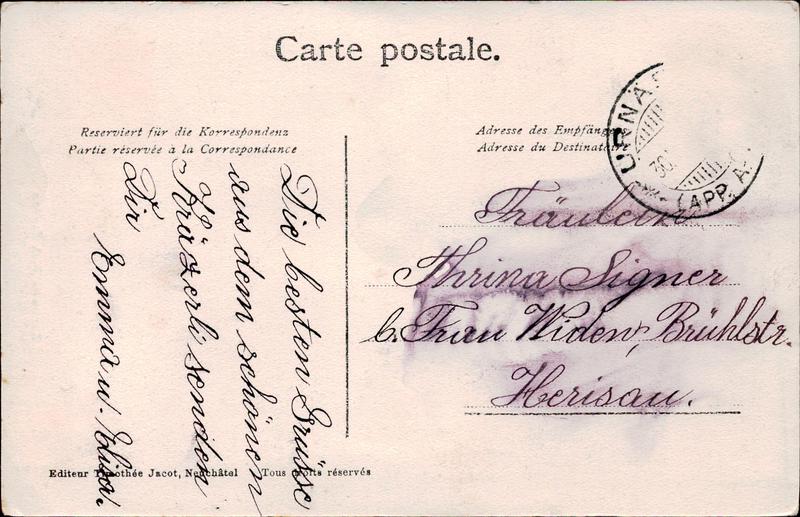 Carte postale.
Reserviert für die Korrespondenz
Partie réservée à la Correspondance
Adresse des Empfänge
Adresse du Destinataire
URNÄS
30.
(APP. A.
Die besten Grüsse
aus dem schönen
Kräzerli senden
Dir
Emma u. Elisa.
Fräulein
Thrina Signer
b. Frau Widen, Brühlstr.
Herisau.
Editeur Timothée Jacot, Neuchâtel Tous droits réservés